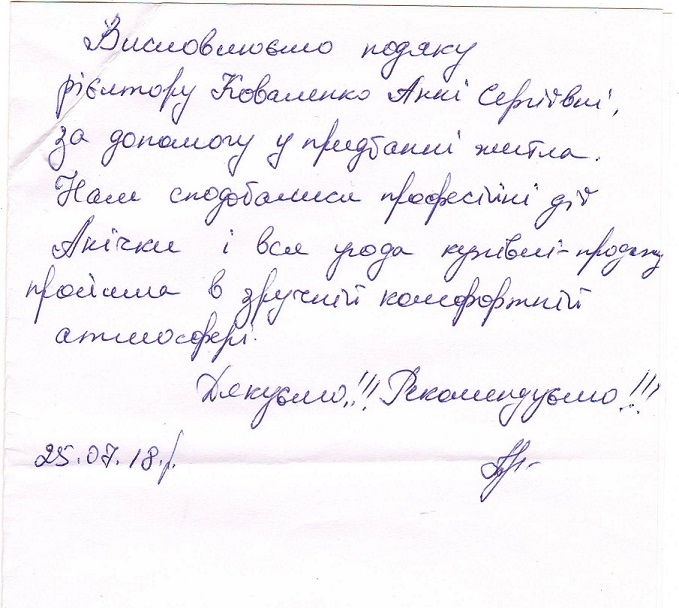 Висловлюємо подяку
рієлтору Коваленко Анні Сергіївні,
за допомогу у придбанні житла.
Нам сподобалися професійні дії
Анічки і вся угода купівлі-продажу
пройшла в зручній комфортній
атмосфері.
Дякуємо!!! Рекомендуємо!!!
25.07.18р.